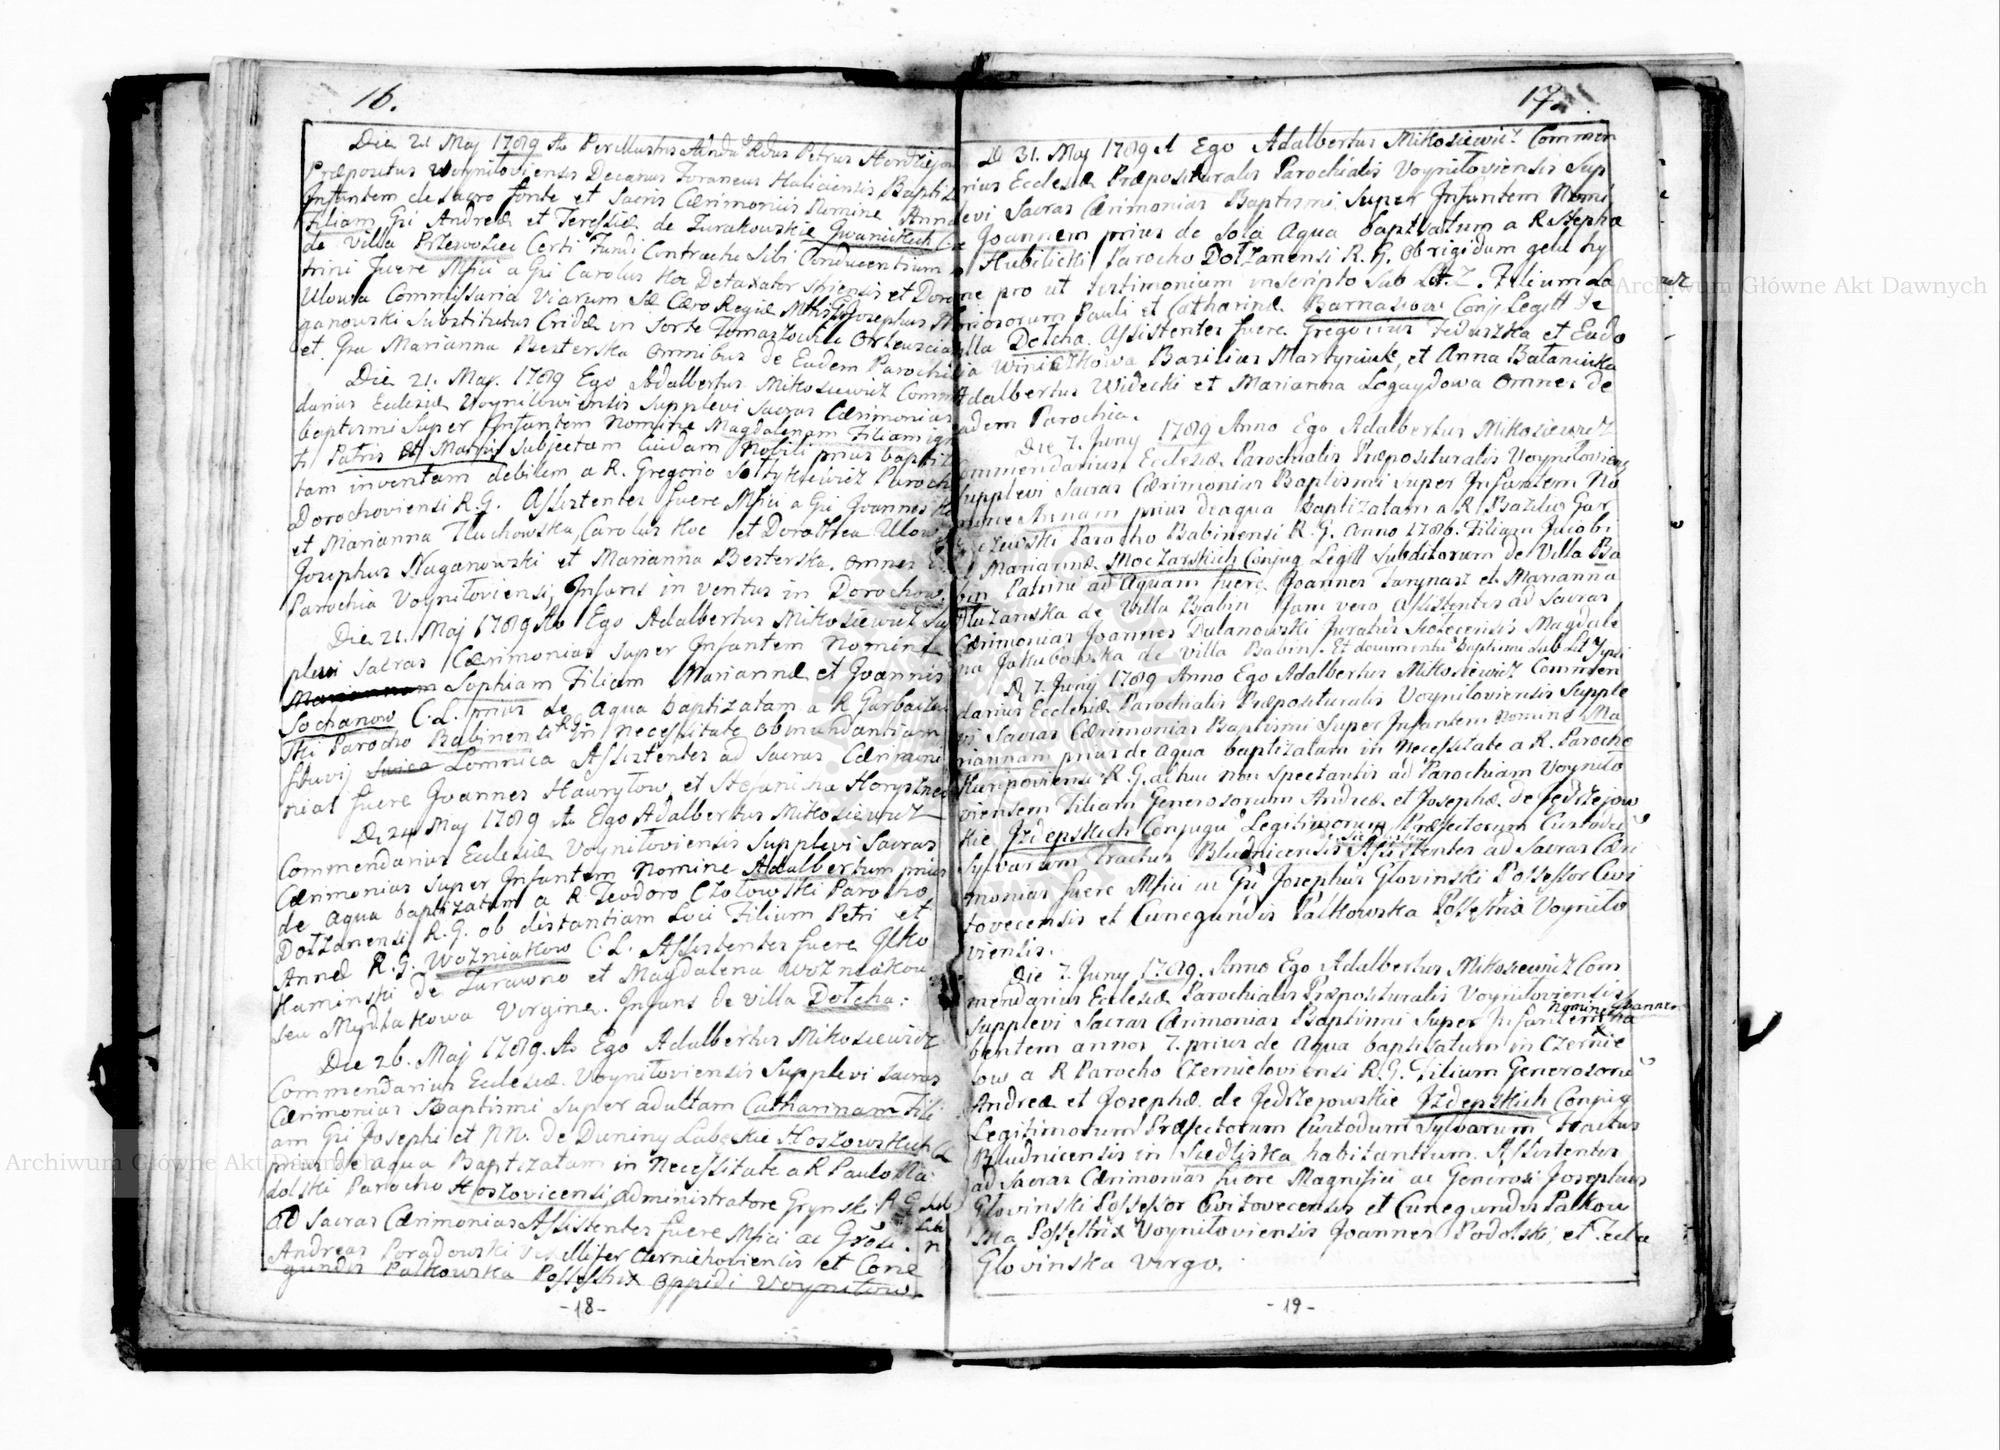 16.
Die 21 Maj 1789 Ao Perillustris Adndu Rdus Petrus
Præpositus Woyniłoviensis Decanus Foraneus Haliciensis Bapti
Infantem de Sacro fonte et Sacris Cærimoniis Nomine Anna
Filiam Gri Andreæ et Teressiæ de Zurakowskie Gwanickich
de Villa Przewoziec Certi Fundi Contractu Sibi Conducentium
trini fuere Mfici a Gri Carolus Koc Detaxator et Doro
Ulowa Commissaria Viarum Sæ Cæro Regiæ Josephus
ganowski Substitutus Cridæ in Sorte
et Gra Marianna Besterska omnibus de Eadem Parochi
Die 21. Maj. 1789 Ego Adalbertus Mikosiewicz Comm
darius Ecclesiæ Voyniłowiensis Supplevi Sacras Cærimonias
baptismi Super Infantem Nomine Magdalenam Filiam ign
ti Patris et Matris Subjectam Cuidam Nobili prius baptiz
tam inventam debilem a R. Gregorio Parocho
Dorochoviensi R.G. Assistentes fuere Mfici a Gri Joannes
et Marianna Tluchowska, Carolus Koc et Dorothea Ulow
Josephus Naganowski et Marianna Besterska. omnes
Parochia Voyniłoviensi, Infans inventus in Dorochow.
Die 21. Maj 1789 Ao Ego Adalbertus Mikosiewicz Su
plevi Sacras Cærimonias Super Infantem Nomine
Mariannam Sophiam Filiam Mariannæ et Joannis
Sochanow C.L. prius de Aqua baptizatam a R Garbaczew
ski Parocho Babinensi R.G. in necessitate ob inundantiam
fluvij Lomnica Assistentes ad Sacras Cærimoni
nias fuere Joannes Hawryłow, et Stefanicha
D. 24 Maj 1789 Ao Ego Adalbertus Mikosiewicz
Commendarius Ecclesiæ Voyniłoviensis Supplevi Sacras
Cærimonias Super Infantem Nomine Adalbertum prius
de Aqua baptizatum a R Teodoro Czołowski Parocho
Dołzanensi R.G. ob distantiam Loci Filium Petri et
Annæ R.G. Wozniakow C.L. Assistentes fuere Ilko
Kaminski de Zurawno et Magdalena Wozniakow
seu Virgine. Infans de villa Dołcha:
Die 26. Maj 1789. Ao Ego Adalbertus Mikosiewicz
Commendarius Ecclesiæ Voyniłoviensis Supplevi Sacras
Cærimonias Baptismi Super adultam Catharinam Fili
am Gri Josephi et NN. de Duniny Labęckie Hoszowskich
prius de aqua Baptizatam in Necessitate a R Paulo
Parocho Hoszovicensi, administratore Grynski R.G. sub
ad Sacras Cærimonias Assistentes fuere Mfici ac Grosi. Lit
Andreas Poradowski Vexillifer Czerniehoviensis et Cune n
gundis Pałkowska Possestrix Oppidi Voyniłow.
-18-
17.
D 31. Maj 1789 A Ego Adalbertus Mikosiewicz Commen
rius Ecclesiæ Præposituralis Parochialis Voyniłoviensis Sup
levi Sacras Cærimonias Baptismi Super Infantem Nomi
Joannem prius de Sola Aqua baptizatum a R Stepha
Hubilicki Parocho Dołzanensi R.G. Ob rigidam gelu hy
me pro ut testimonium inscripto Sub Lit. Z. Filium La
boriosorum Pauli et Catharinæ Barnasiow Conj Legitt de
illa Dołcha. Assistentes fuere Gregorius Feduszka et Eudo
ia Winiczkowa Basilius Martyniuk, et Anna
Adalbertus Widecki et Marianna Logaydowa Omnes de
eadem Parochia.
Die 7. Juny 1789 Anno Ego Adalbertus Mikosiewicz
ommendarius Ecclesiæ Parochialis Præposituralis Voyniłoviens
Supplevi Sacras Cærimonias Baptismi Super Infantem No
mine Annam prius de aqua Baptizatam a R Bazilio Gar
czewski Parocho Babinensi R.G. Anno 1786. Filiam Jacobi
Mariannæ Moczarskich Conjug Legitt Subditorum de Villa Ba
bin Patrini ad Aquam fuere Joannes et Marianna
de Villa Babin Jam vero Assistentes ad Sacras
Cærimonias Joannes Dulanowski Juratus Magdale
na Jakubowska de Villa Babin. Et documentum Baptismi Sub Lit
D 7. Junij 1789 Anno Ego Adalbertus Mikosiewicz Commen
darius Ecclesiæ Parochialis Præposituralis Voyniłoviensis Supple
vi Sacras Cærimonias Baptismi Super Infantem nomine Ma
riannam prius de Aqua baptizatam in Necessitate a R. Parocho
Kuripoviensi R.G. adhuc non Spectantis ad Parochiam Voyniło
viensem Filiam Generosorum Andreæ et Josephæ de Jędrzejow
skie Jzdepskich Conjugū Legitimorum Præfectorum Custodū
Sylvarum tractus Bludnicensis Assistentes ad Sacras Cæri
monias fuere Mfici ac Gri Josephus Glovinski Possessor Cwi
tovecensis et Cunegundis Pałkowska Possestrix Voyniło
viensis.
Die 7. Juny 1789. Anno Ego Adalbertus Mikosiewicz Com
mendarius Ecclesiæ Parochialis Præposituralis Voyniłoviensis
Nomine Joannem
Supplevi Sacras Cærimonias Baptismi Super Infantem ha
bentem annos 7. prius de Aqua baptizatum in Czernie
low a R Parocho Czernieloviensi R.G. Filium Generosorū
Andreæ et Josephæ de Jędrzejowskie Jzdepskich Conjug
Legitimorum Præfectorum Custodum Sylvarum Tractus
Bludnicensis in Siedliska habitantium. Assistentes
ad Sacras Cærimonias fuere Magnifici ac Generosi Josephus
Glovinski Possessor Cwitovecensis et Cunegundis Pałkow
ska Possestrix Voyniłoviensis Joannes Podolski, et Tecla
Glovinska Virgo.
-19-
Archiwum Główne Akt Dawnych
Archiwum Główne Akt Dawnych